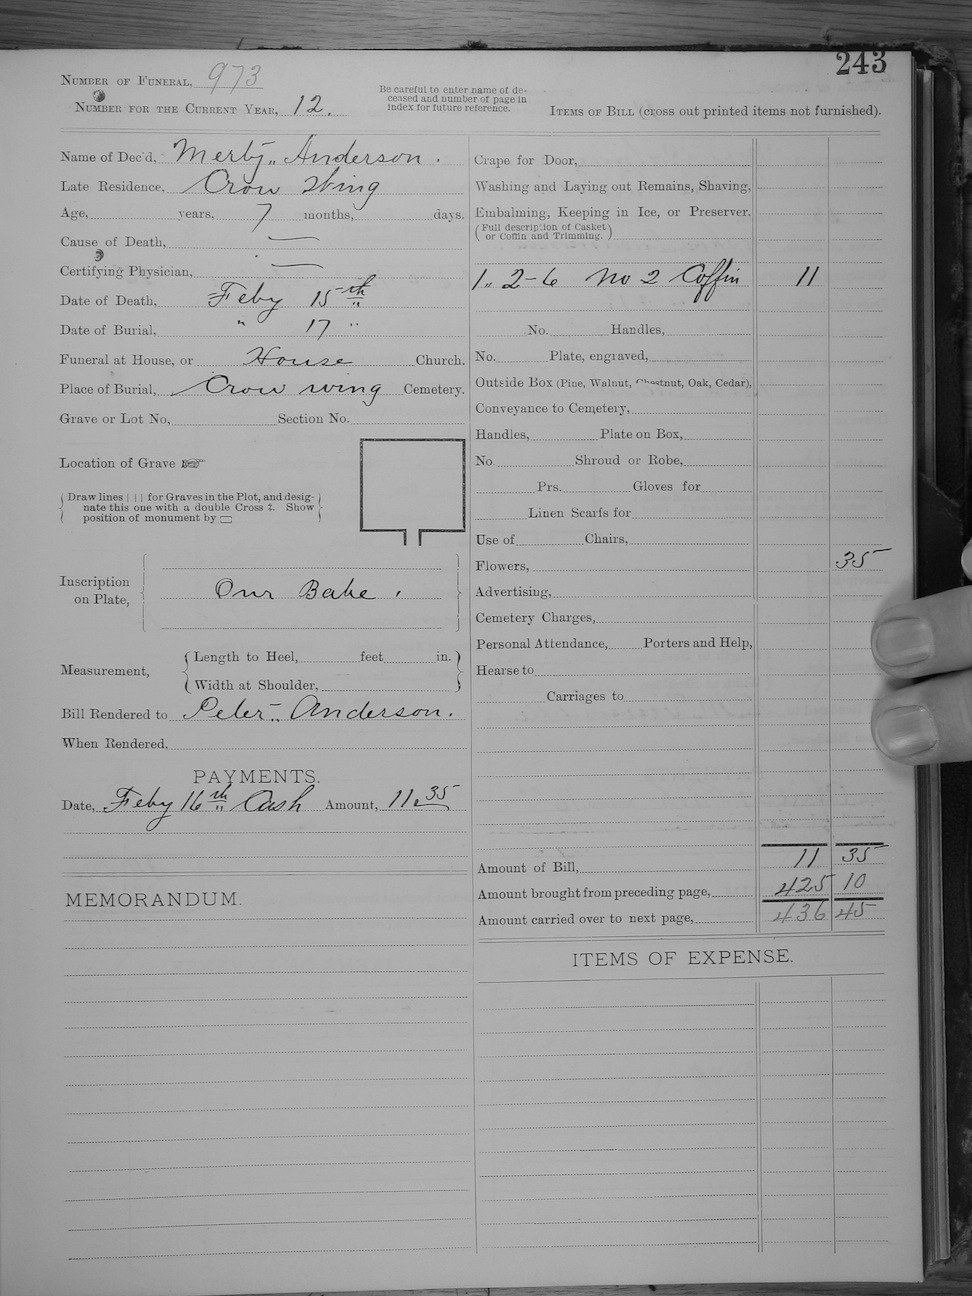 243
NUMBER OF FUNERAL, 973
NUMBER FOR THE CURRENT YEAR, 12.
Be careful to enter name of de-
ceased and number of page in
index for future reference.
ITEMS OF BILL (cross out printed items not furnished).
Name of Dec'd, Anderson.
Late Residence, Crow Wing
Age, years, 7 months, days.
Cause of Death, —
Certifying Physician, —
Date of Death, Feby 15th
Date of Burial, " 17 "
Funeral at House, or House Church.
Place of Burial, Crow wing Cemetery.
Grave or Lot No, Section No.
Location of Grave ☞
Draw lines | | | for Graves in the Plot, and desig-
nate this one with a double Cross ‡. Show
position of monument by ▭
Inscription
on Plate,
Our Babe.
Measurement,
Length to Heel, feet in.
Width at Shoulder,
Bill Rendered to Peter Anderson.
When Rendered,
PAYMENTS.
Date, Feby 16th Cash Amount, 11.35
MEMORANDUM.
Crape for Door,
Washing and Laying out Remains, Shaving,
Embalming, Keeping in Ice, or Preserver.
(Full description of Casket
or Coffin and Trimming.)
1,, 2-6 No 2 Coffin 11
No. Handles,
No. Plate, engraved,
Outside Box (Pine, Walnut, Chestnut, Oak, Cedar),
Conveyance to Cemetery,
Handles, Plate on Box,
No. Shroud or Robe,
Prs. Gloves for
Linen Scarfs for
Use of Chairs,
Flowers, 35
Advertising,
Cemetery Charges,
Personal Attendance, Porters and Help,
Hearse to
Carriages to
Amount of Bill, 11 35
Amount brought from preceding page, 425 10
Amount carried over to next page, 436 45
ITEMS OF EXPENSE.